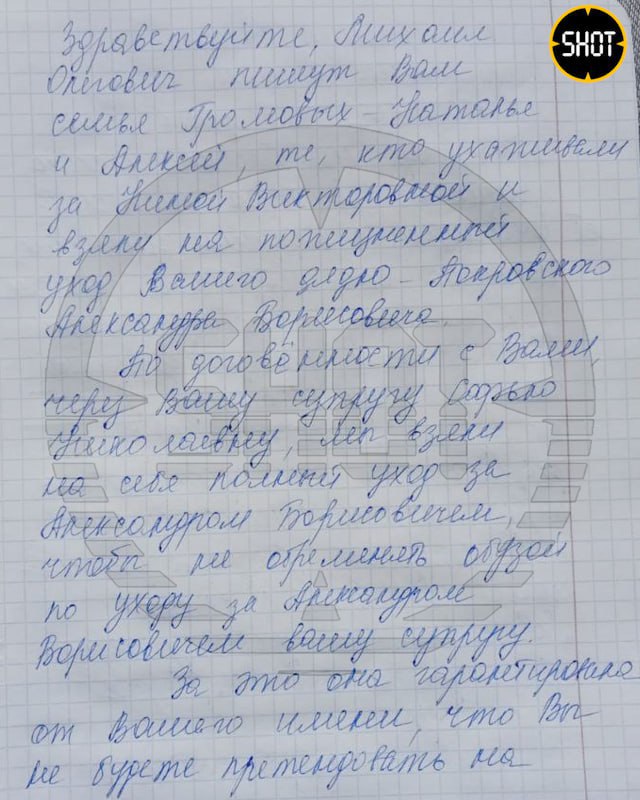 SHOT
Здравствуйте, Михаил
Олегович пишут Вам
семья Громовых - Наталья
и Алексей, те, кто ухаживали
за Ниной Викторовной и
взяли на пожизненный
уход Вашего дядю - Покровского
Александра Борисовича.
По договённости с Вами,
через Вашу супругу Софью
Николаевну, мы взяли
на себя полный уход за
Александром Борисовичем,
чтобы не обременять обузой
по уходу за Александром
Борисовичем вашу супругу.
За это она гарантировала
от Вашего имени, что Вы
не будете претендовать на
SHOT